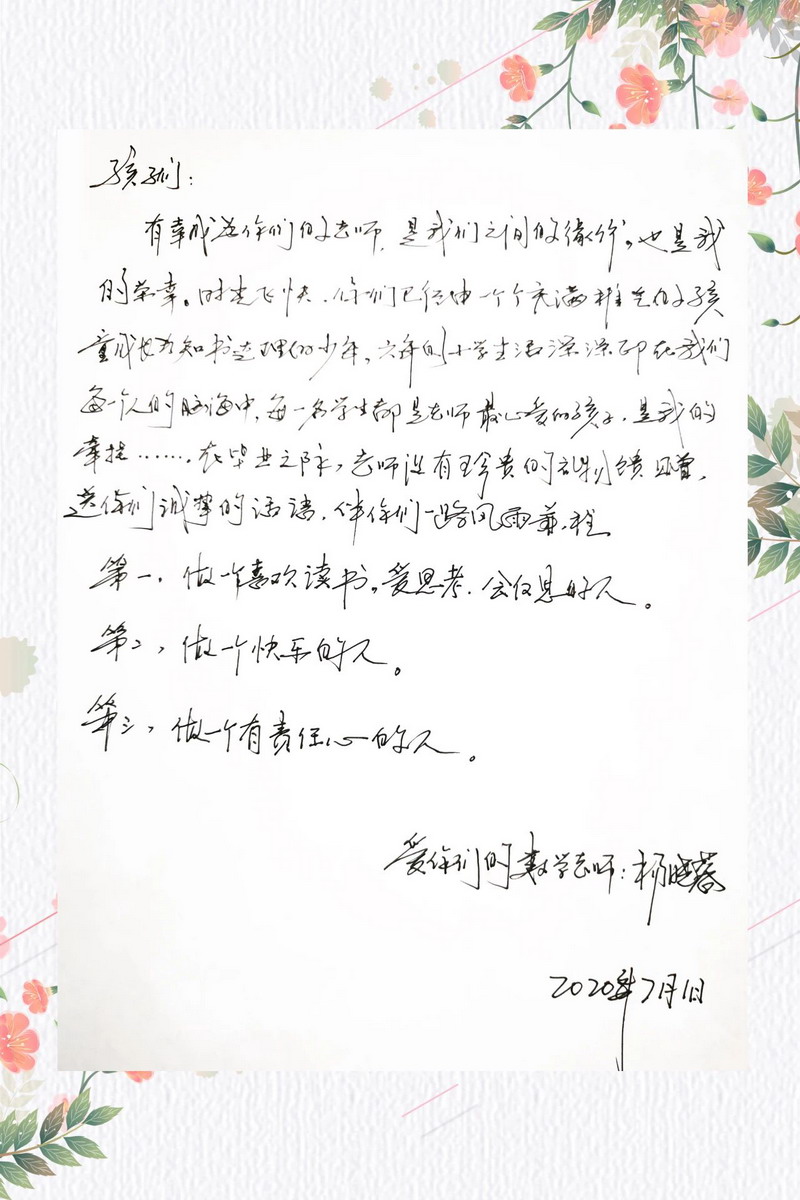 孩子们：
有幸成为你们的老师，是我们之间的缘分。也是我
的荣幸。时光飞快，你们已经由一个个充满稚气的孩
童成长为知书达理的少年，六年的小学生活深深印在我们
每一个人的脑海中，每一名学生都是老师最心爱的孩子，是我的
牵挂……，在毕业之际，老师没有珍贵的礼物馈赠，
送你们诚挚的话语，伴你们一路风雨兼程
第一，做一个喜欢读书。爱思考，会反思的人。
第二，做一个快乐的人。
第三，做一个有责任心的人。
爱你们的数学老师：杨晓蓉
2020年7月1日